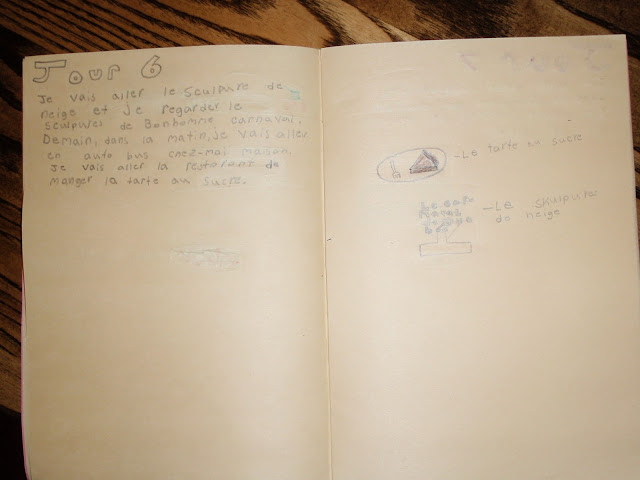 Jour 6
Je vais aller le sculpure de
neige et je regarder le
sculpures de Bonhomme carnaval.
Demain, dans la matin, je vais aller
en auto bus chez-mai maison.
Je vais aller la restorans de
manger la tarte au sucre.
-Le tarte au sucre
-Le skulputer
de neige